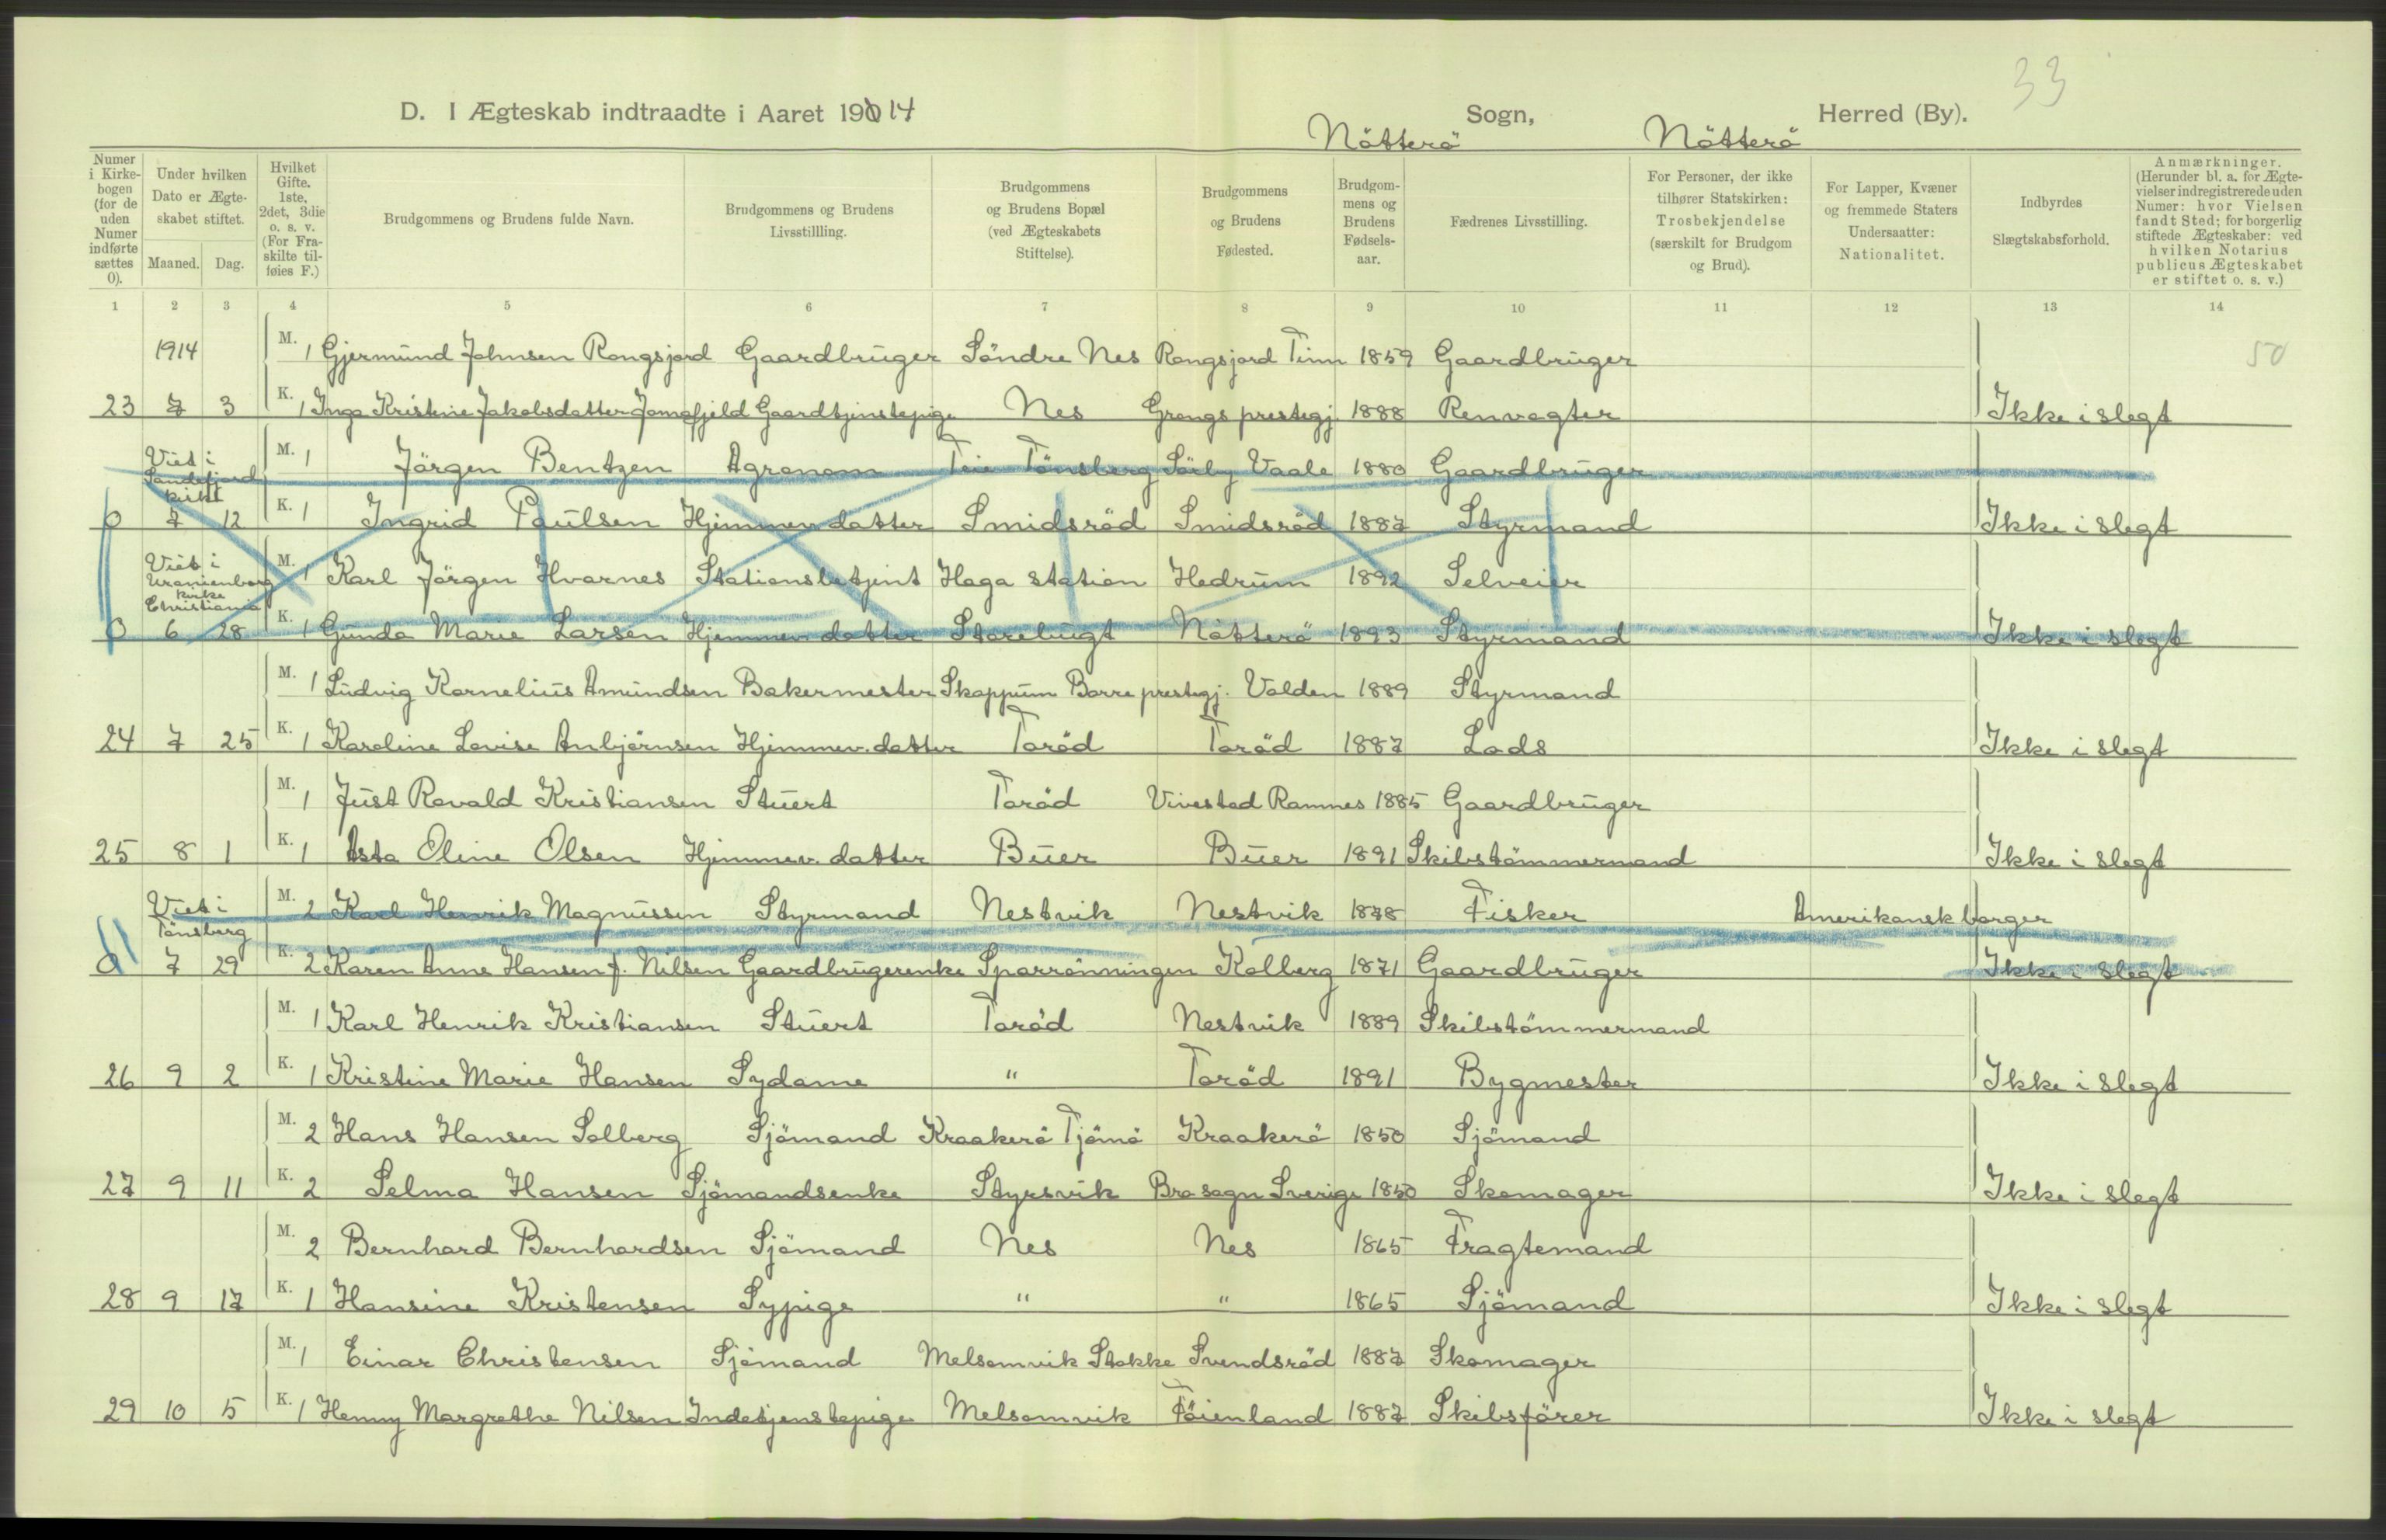 33
D. I Ægteskab indtraadte i Aaret 190 14 Nötterö Sogn, Nötterö Herred (By).
Numer i Kirkebogen (for de uden Numer indførte sættes 0). Under hvilken Dato er Ægteskabet stiftet. Maaned. Dag. Hvilket Gifte. 1ste, 2det, 3die o. s. v. (For Fraskilte tilføies F.) Brudgommens og Brudens fulde Navn. Brudgommens og Brudens Livsstillling. Brudgommens og Brudens Bopæl (ved Ægteskabets Stiftelse). Brudgommens og Brudens Fødested. Brudgommens og Brudens Fødselsaar. Fædrenes Livsstilling. For Personer, der ikke tilhører Statskirken: Trosbekjendelse (særskilt for Brudgom og Brud). For Lapper, Kvæner og fremmede Staters Undersaatter: Nationalitet. Indbyrdes Slægtskabsforhold. Anmærkninger. (Herunder bl. a. for Ægtevielser indregistrerede uden Numer: hvor Vielsen fandt Sted; for borgerlig stiftede Ægteskaber: ved hvilken Notarius publicus Ægteskabet er stiftet o. s. v.)
1 2 3 4 5 6 7 8 9 10 11 12 13 14
1914 M. 1 Gjermund Johnsen Rongsjord Gaardbruger Söndre Nes Rongsjord Tinn 1859 Gaardbruger 50
23 7 3 K. 1 Inga Kristine Jakobsdatter Jomafjeld Gaardtjenstepige Nes Grongs prestegj. 1888 Renvogter Ikke i slegt
Viet i Sandefjord kirke M. 1 Jörgen Bentzen Agronom Teie Tönsberg Sörby Vaale 1880 Gaardbruger
0 7 12 K. 1 Ingrid Paulsen Hjemmev datter Smidsröd Smidsröd 1887 Styrmand Ikke i slegt
Viet i Uranienborg kirke Christiania M. 1 Karl Jörgen Hvarnes Stationsbetjent Haga station Hedrum 1892 Selveier
0 6 28 K. 1 Gunda Marie Larsen Hjemmev datter Storebugt Nötterö 1893 Styrmand Ikke i slegt
M. 1 Ludvig Kornelius Amundsen Bakermester Skoppum Borre prestegj. Volden 1889 Styrmand
24 7 25 K. 1 Karoline Lovise Anbjörnsen Hjemmev. datter Toröd Toröd 1887 Lods Ikke i slegt
M. 1 Just Rovald Kristiansen Stuert Toröd Vivestad Ramnes 1885 Gaardbruger
25 8 1 K. 1 Asta Oline Olsen Hjemmev. datter Buer Buer 1891 Skibstömmermand Ikke i slegt
Viet i Tönsberg M. 2 Karl Henrik Magnussen Styrmand Nestvik Nestvik 1878 Fisker Amerikansk borger
0 7 29 K. 2 Karen Anne Hansen f. Nilsen Gaardbrugerenke Sparrönningen Kolberg 1871 Gaardbruger Ikke i slegt
M. 1 Karl Henrik Kristiansen Stuert Toröd Nestvik 1889 Skibstömmermand
26 9 2 K. 1 Kristine Marie Hansen Sydame " Toröd 1891 Bygmester Ikke i slegt
M. 2 Hans Hansen Solberg Sjömand Kraakerö Tjömö Kraakerö 1850 Sjömand
27 9 11 K. 2 Selma Hansen Sjömandsenke Styrsvik Bro sogn Sverige 1850 Skomager Ikke i slegt
M. 2 Bernhard Bernhardsen Sjömand Nes Nes 1865 Fragtemand
28 9 17 K. 1 Hansine Kristensen Sypige " " 1865 Sjömand Ikke i slegt
M. 1 Einar Christensen Sjömand Melsomvik Stokke Svendsröd 1887 Skomager
29 10 5 K. 1 Henny Margrethe Nilsen Indetjenstepige Melsomvik Föienland 1887 Skibsförer Ikke i slegt